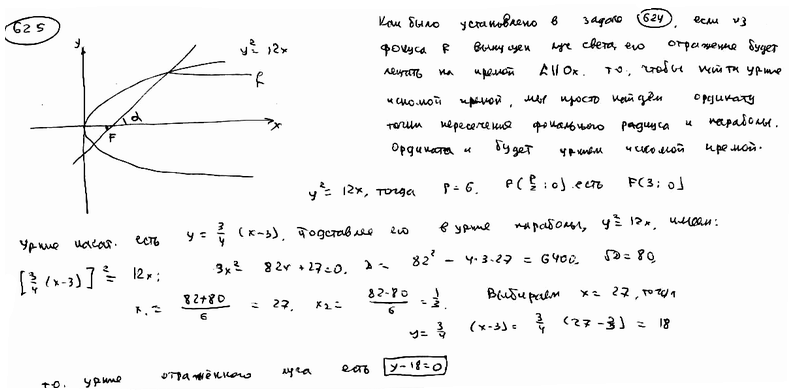 625
y
y² = 12x
α
F
x
Как было установлено в задаче 624, если из
фокуса F выпущен луч света, его отражение будет
лежать на прямой ∥ Ox. т.о., чтобы найти ур-ние
искомой прямой, мы просто найдём ординату
точки пересечения фокального радиуса и параболы.
Ордината и будет ур-нием искомой прямой.
y² = 12x, тогда p = 6. F(p/2; 0) есть F(3; 0)
Ур-ние касат. есть y = 3/4 (x-3), Подставляя его в ур-ние параболы, y² = 12x, имеем:
[3/4 (x-3)]² = 12x; 3x² - 82x + 27 = 0. D = 82² - 4·3·27 = 6400. √D = 80.
x₁ = (82+80)/6 = 27, x₂ = (82-80)/6 = 1/3. Выбираем x = 27, тогда
y = 3/4 (x-3) = 3/4 (27-3) = 18
т.о. ур-ние отражённого луча есть y-18=0